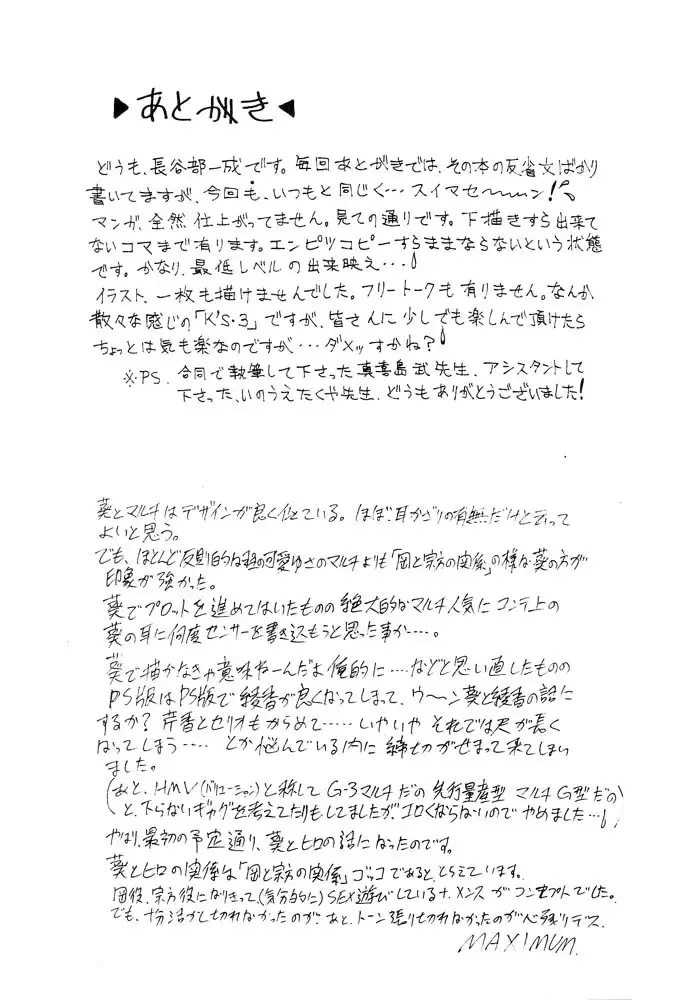 ▶あとがき◀
どうも、長谷部一成です。毎回あとがきでは、その本の反省文ばかり
書いてますが、今回も、いつもと同じく…スイマセ〜〜ン!
マンガ、全然仕上がってません。見ての通りです。下描きすら出来て
ないコマまで有ります。エンピツコピーすらままならないという状態
です。かなり、最低レベルの出来映え…!
イラスト、一枚も描けませんでした。フリートークも有りません。なんか、
散々な感じの「K'S・3」ですが、皆さんに少しでも楽しんで頂けたら
ちょっとは気も楽なのですが…ダメッすかね?!
※PS. 合同で執筆して下さった真喜島武先生、アシスタントして
下さった、いのうえたくや先生、どうもありがとうございました!
葵とマルチはデザインが良く似ている。ほぼ、耳かざりの有無だけと云って
よいと思う。
でも、ほとんど反則的な の可愛ゆさのマルチよりも「岡と宗方の関係」の様な葵の方が
印象が強かった。
葵でプロットを進めてはいたものの絶大的なマルチ人気にコンテ上の
葵の耳に何度センサーを書き込もうと思った事か…。
葵で描かなきゃ意味ねーんだよ俺的に…などと思い直したものの
PS版はPS版で綾香が良くなってしまって、ウ〜ン葵と綾香の話に
するか? 芹香とセリオもからめて……いやいや それでは尺が長く
なってしまう…… とか悩んでいる内に締切がせまって来てしまい
ました。
(あと、HMV(バリエーション)と称して G-3マルチだの 先行量産型 マルチG型だの
と、下らないギャグを考えてたりもしてましたがエロくならないのでやめました…!)
やはり、最初の予定通り、葵とヒロの話になったのです。
葵とヒロの関係は「岡と宗方の関係」ゴッコであると、とらえています。
岡役、宗方役になりきって、(気分的に)SEX遊びしている がコンセプトでした。
でも、十分活かし切れなかったのが、あと、トーン張り切れなかったのが心残りデス。
MAXIMUM.